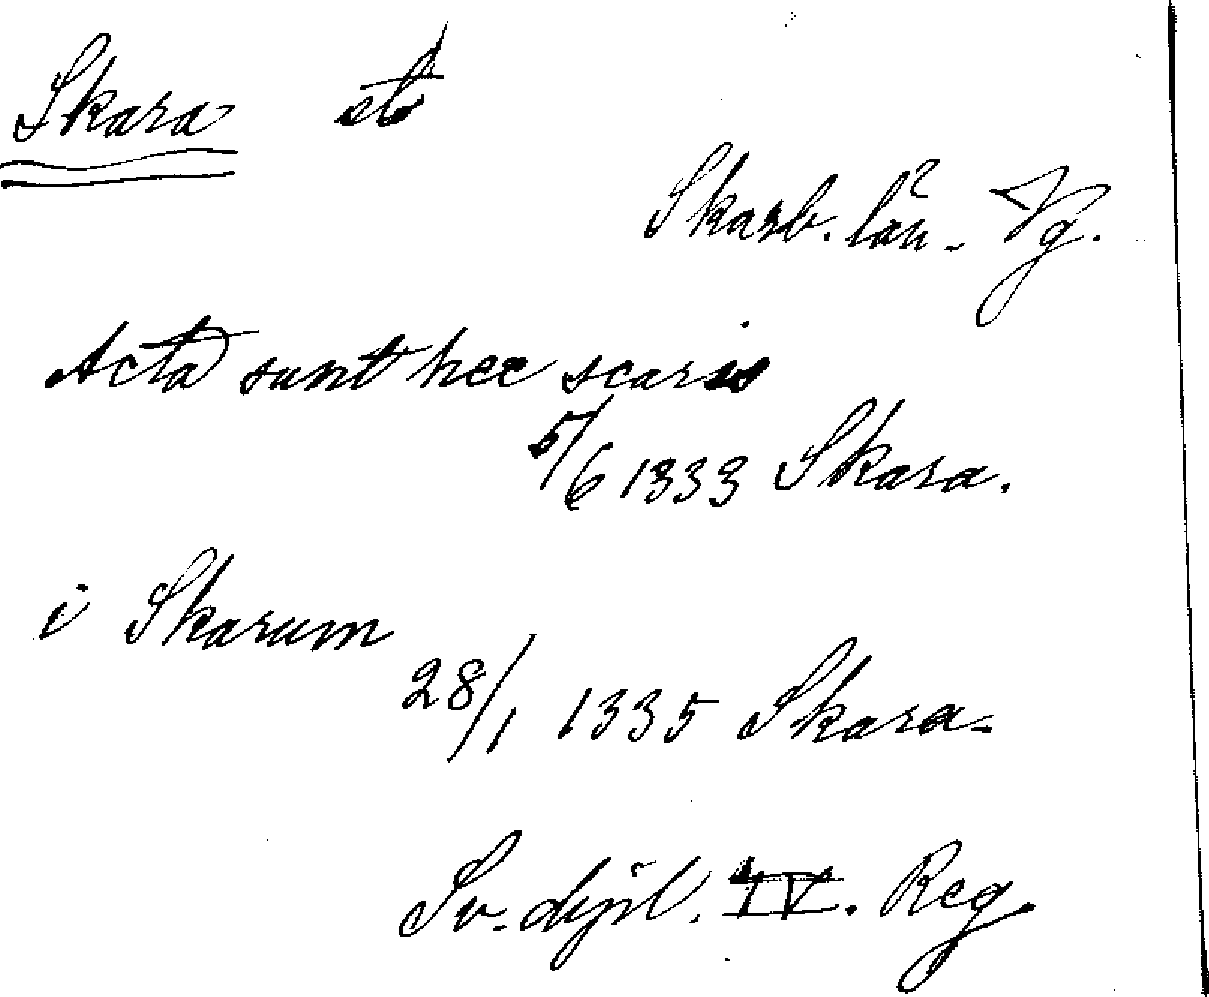 Skara st
Skarb. län. Vg.
Acta sunt hec scaris
5/6 1333 Skara.
i Skarum
28/1 1335 Skara.
Sv. dipl. IV. Reg.